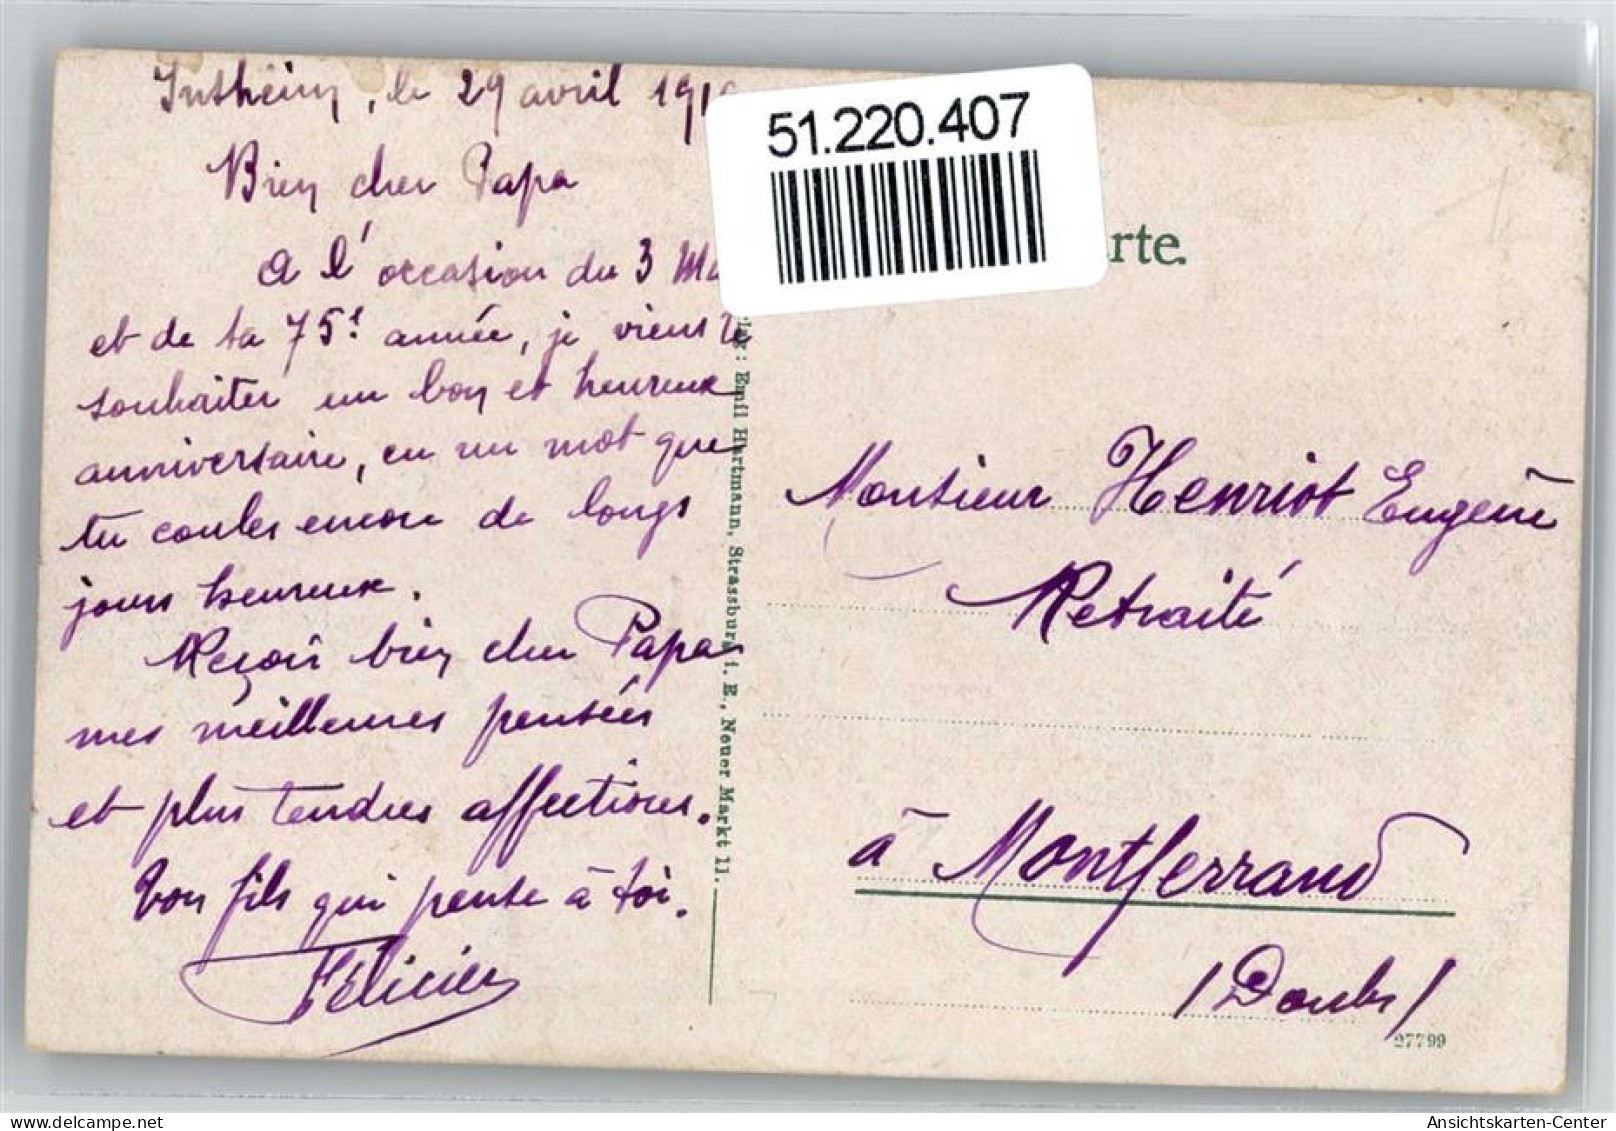 le 29 avril 191
Bien cher Papa
A l'occasion du 3 Ma
et de ta 75e année, je viens te
souhaiter un bon et heureux
anniversaire, en un mot que
tu coules encore de longs
jours heureux.
Reçois bien cher Papa
mes meilleures pensées
et plus tendres affections.
Ton fils qui pense à toi.
Félicien
51.220.407
rte.
rlag: Emil Hartmann, Strassburg i. E., Neuer Markt 11.
Monsieur Henriot Eugène
Retraité
à Montferrand
(Doubs)
27799
Ansichtskarten-Center